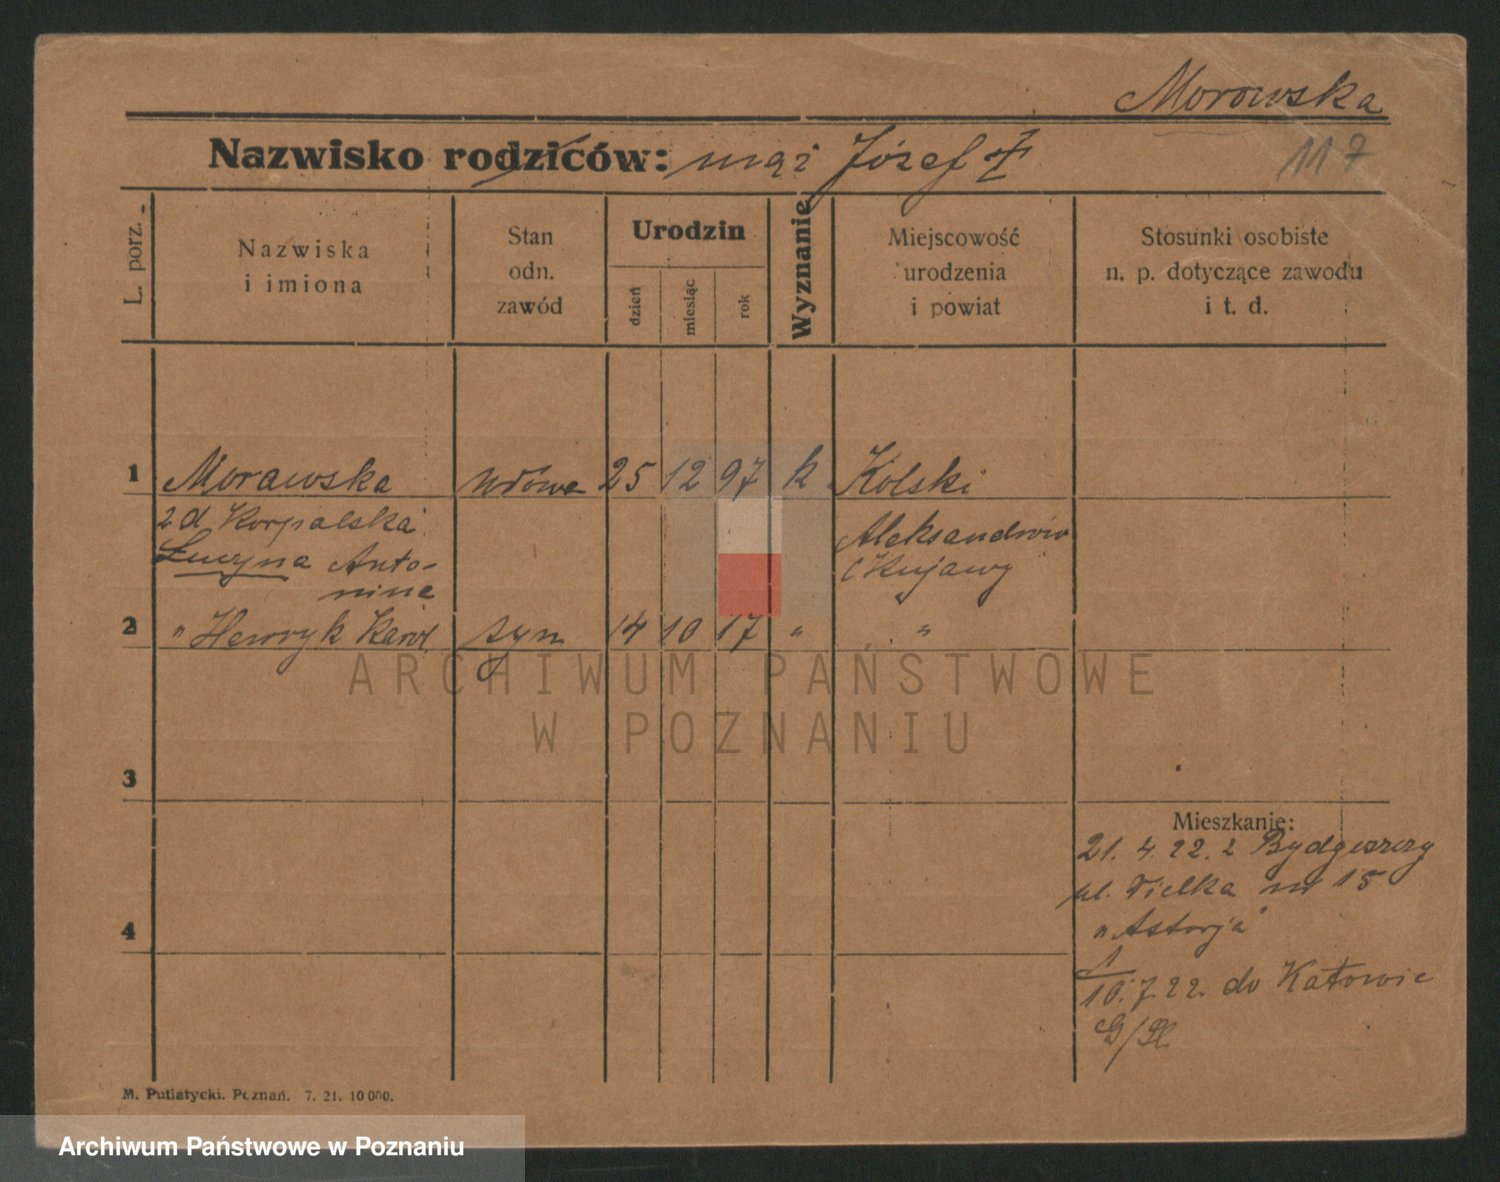 Morowska
Nazwisko rodziców: mąż Józef
117
L. porz.
Nazwiska
i imiona
Stan
odn.
zawód
Urodzin
dzień
miesiąc
rok
Wyznanie
Miejscowość
urodzenia
i powiat
Stosunki osobiste
n. p. dotyczące zawodu
i t. d.
1 Morawska wdowa 25 12 97 k Kolski
zd Korpalska Aleksandrów
Lucyna Anto- (Kujawy
nina
2 " Henryk Karol syn 14 10 17 " "
ARCHIWUM PAŃSTWOWE
W POZNANIU
3
Mieszkanie:
21. 4. 22. z Bydgoszczy
ul. Wielka nr 15
4 "Astorja"
10. 7. 22. do Katowic
G/Śl
M. Putiatycki. Poznań. 7. 21. 10 000.
Archiwum Państwowe w Poznaniu